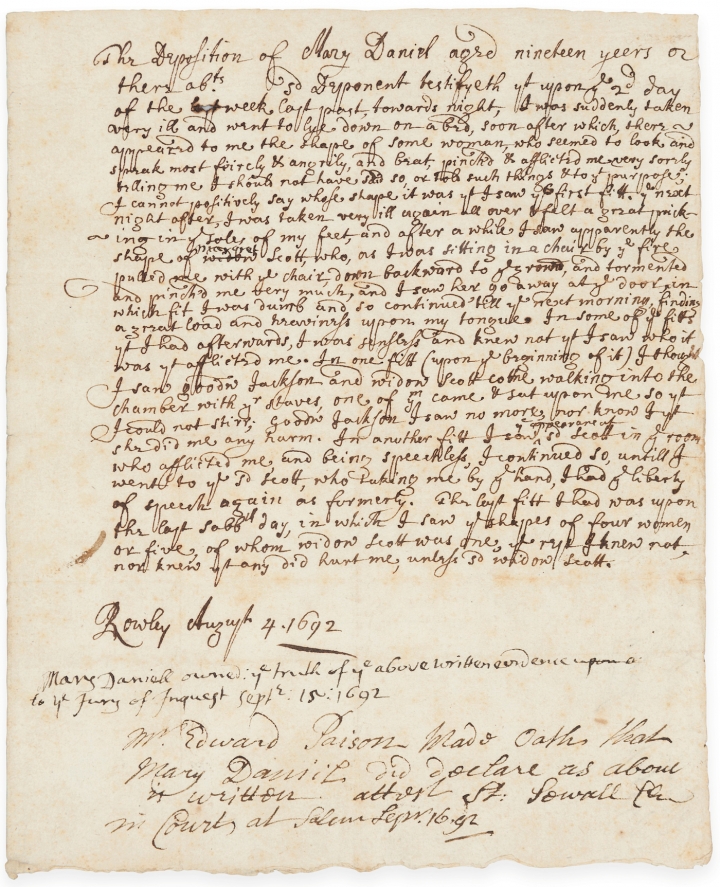 The Deposition of Mary Daniel aged nineteen yeers or
there abts sd Deponent testifyeth yt upon ye 2d day
of the week last past, towards night, I was suddenly taken
very ill and went to lye down on a bed, soon after which, there
appeared to me the shape of some woman, who seemed to look and
speak most feircly & angrily, and beat, pinch'd & afflicted me very sorely
telling me I should not have sd so, or told such things & to yt purpose:
I cannot positively say whose shape it was yt I saw ye first fitt. ye next
night after, I was taken very ill again all over & felt a great prick-
ing in ye soles of my feet, and after a while I saw apparently the
shape of widow Scott, who, as I was sitting in a chair by ye fire
pulled me with ye chair, down backward to ye ground, and tormented
and pinch'd me very much, and I saw her go away at ye door, in
which fit I was dumb and so continued till ye next morning, finding
a great load and heaviness upon my tongue. In some of ye fitts
yt I had afterwards, I was sensless and knew not yt I saw who it
was yt afflicted me. In one fitt (upon ye beginning of it) I thought
I saw goodw Jackson and widow Scott come walking into the
chamber with yr staves, one of ym came & sat upon me so yt
I could not stirr; goodw Jackson I saw no more, nor know I yt
she did me any harm. In another fitt I saw ye appearance of sd Scott in ye room
who afflicted me, and being speechless, I continued so, untill I
went to ye sd Scott, who taking me by ye hand, I had ye liberty
of speech again as formerly. The last fitt I had was upon
the last Sabbth day, in which I saw ye shapes of four women
or five, of whom widow Scott was one, ye rest I knew not,
nor knew yt any did hurt me, unless sd widow Scott.
Rowley August 4. 1692
Mary Daniell owned: ye truth of ye above written evidence upon
to ye Jury of Inquest Septr: 15: 1692
Mr. Edward Paison Made Oath that
Mary Daniel did declare as above
is written attest St: Sewall Cler
in Court at Salem Sepr. 16. 92